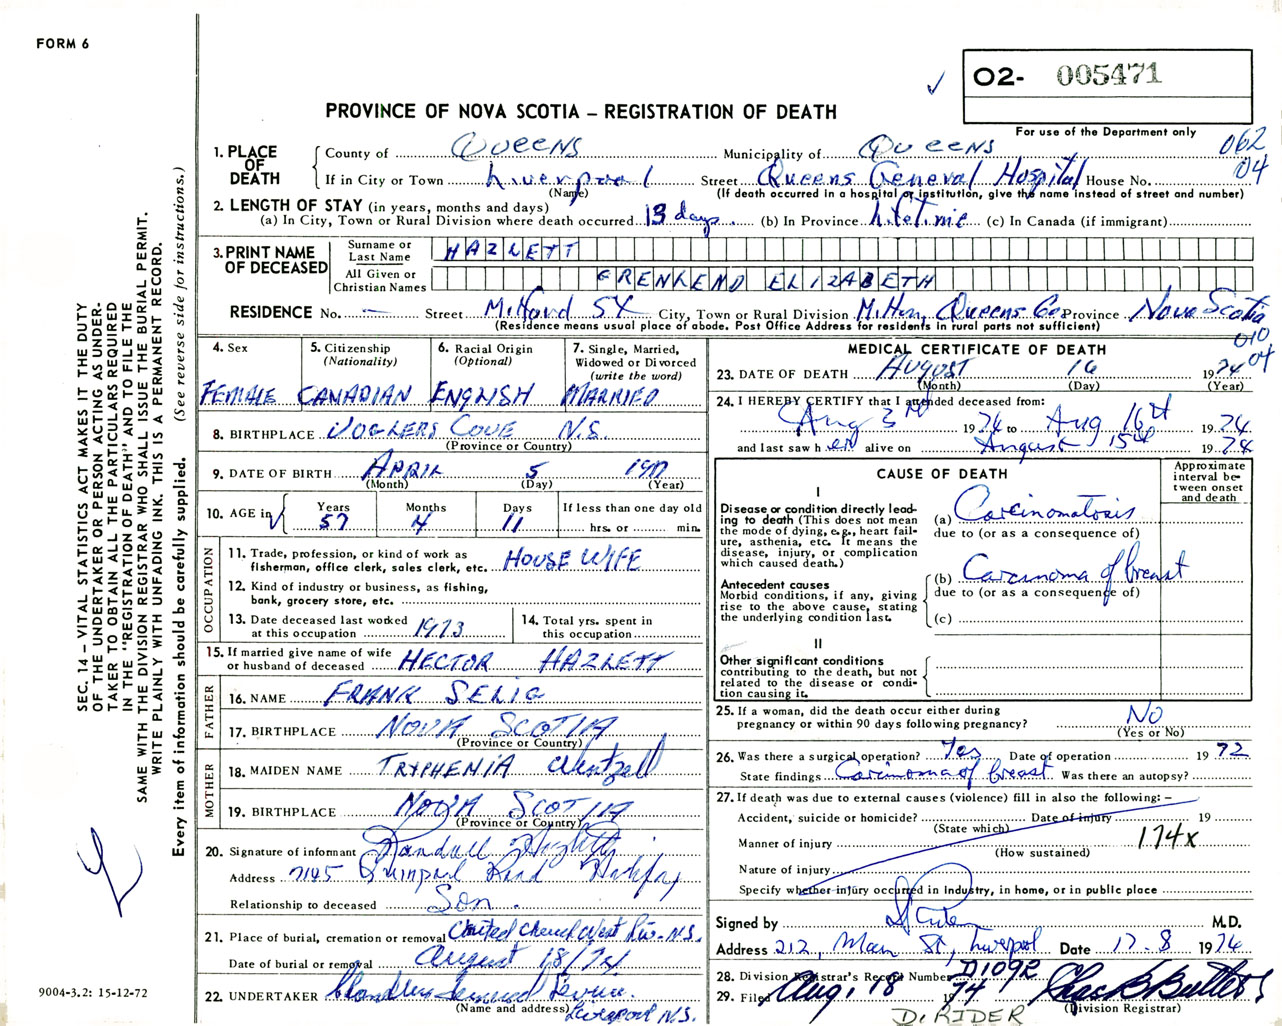 FORM 6
O2- 005471
For use of the Department only
PROVINCE OF NOVA SCOTIA – REGISTRATION OF DEATH
062
04
1. PLACE OF DEATH
County of Queens Municipality of Queens
If in City or Town Liverpool Street Queens General Hospital House No.
(Name) (If death occurred in a hospital or institution, give the name instead of street and number)
2. LENGTH OF STAY (in years, months and days)
(a) In City, Town or Rural Division where death occurred 13 days (b) In Province Lifetime (c) In Canada (if immigrant)
3. PRINT NAME OF DECEASED
Surname or Last Name HAZLETT
All Given or Christian Names GRENLEND ELIZABETH
RESIDENCE No. — Street Milford St City, Town or Rural Division Milton, Queens Co. Province Nova Scotia
(Residence means usual place of abode. Post Office Address for residents in rural parts not sufficient)
010
04
4. Sex FEMALE
5. Citizenship (Nationality) CANADIAN
6. Racial Origin (Optional) ENGLISH
7. Single, Married, Widowed or Divorced (write the word) MARRIED
8. BIRTHPLACE VOGLERS COVE N.S.
(Province or Country)
9. DATE OF BIRTH APRIL 5 1917
(Month) (Day) (Year)
10. AGE in Years 57 Months 4 Days 11 If less than one day old hrs. or min.
OCCUPATION
11. Trade, profession, or kind of work as fisherman, office clerk, sales clerk, etc. HOUSE WIFE
12. Kind of industry or business, as fishing, bank, grocery store, etc.
13. Date deceased last worked at this occupation 1973
14. Total yrs. spent in this occupation
15. If married give name of wife or husband of deceased HECTOR HAZLETT
FATHER
16. NAME FRANK SELIG
17. BIRTHPLACE NOVA SCOTIA
(Province or Country)
MOTHER
18. MAIDEN NAME TRYPHENIA Wentzell
19. BIRTHPLACE NOVA SCOTIA
(Province or Country)
20. Signature of informant Randall Hazlett
Address 7145 Quinpool Road Halifax
Relationship to deceased Son.
21. Place of burial, cremation or removal United Church West Riv. N.S.
Date of burial or removal August 18/74
22. UNDERTAKER Chandlers Funeral Service.
(Name and address) Liverpool N.S.
MEDICAL CERTIFICATE OF DEATH
23. DATE OF DEATH AUGUST 16 1974
(Month) (Day) (Year)
24. I HEREBY CERTIFY that I attended deceased from:
Aug 3rd 1974 to Aug 16th 1974
and last saw her alive on August 15th 1974
CAUSE OF DEATH
Approximate interval between onset and death
I
Disease or condition directly leading to death (This does not mean the mode of dying, e.g., heart failure, asthenia, etc. It means the disease, injury, or complication which caused death.)
(a) Carcinomatosis
due to (or as a consequence of)
Antecedent causes
Morbid conditions, if any, giving rise to the above cause, stating the underlying condition last.
(b) Carcinoma of breast
due to (or as a consequence of)
(c)
II
Other significant conditions contributing to the death, but not related to the disease or condition causing it.
25. If a woman, did the death occur either during pregnancy or within 90 days following pregnancy? No
(Yes or No)
26. Was there a surgical operation? Yes Date of operation 1972
State findings Carcinoma of breast Was there an autopsy?
27. If death was due to external causes (violence) fill in also the following: –
Accident, suicide or homicide? Date of injury 19
(State which)
Manner of injury 174X
(How sustained)
Nature of injury
Specify whether injury occurred in Industry, in home, or in public place
Signed by M.D.
Address 212, Main St, Liverpool Date 17-8 1974
28. Division Registrar's Record Number D1092
29. Filed Aug. 18 1974 Chas B Butler
(Division Registrar)
D. RIDER
SEC. 14 – VITAL STATISTICS ACT MAKES IT THE DUTY
OF THE UNDERTAKER OR PERSON ACTING AS UNDER-
TAKER TO OBTAIN ALL THE PARTICULARS REQUIRED
IN THE "REGISTRATION OF DEATH" AND TO FILE THE
SAME WITH THE DIVISION REGISTRAR WHO SHALL ISSUE THE BURIAL PERMIT.
WRITE PLAINLY WITH UNFADING INK. THIS IS A PERMANENT RECORD.
Every item of information should be carefully supplied. (See reverse side for instructions.)
9004-3.2: 15-12-72